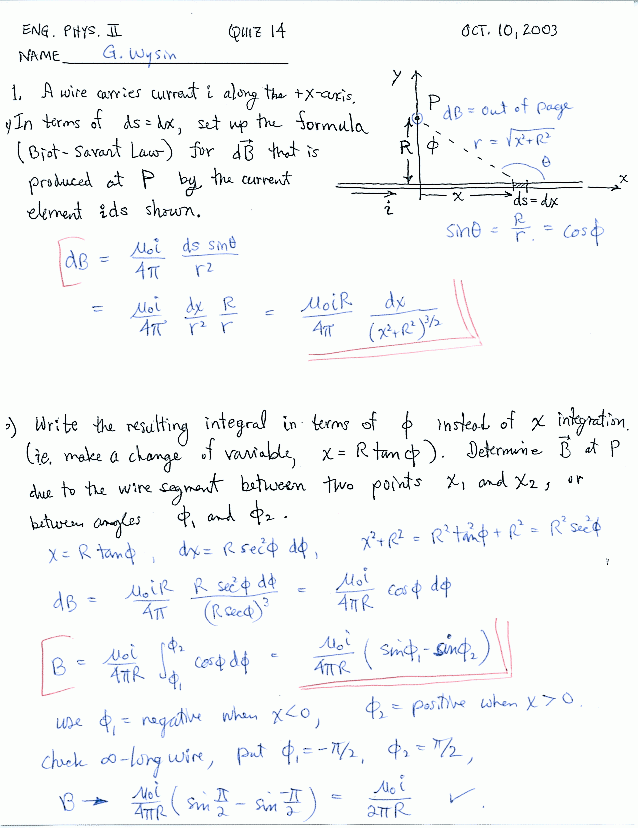 ENG. PHYS. II QUIZ 14 OCT. 10, 2003
NAME G. Wysin
1. A wire carries current i along the +x-axis.
1) In terms of ds = dx, set up the formula
(Biot-Savart Law) for dB⃗ that is
produced at P by the current
element i ds shown.
y
P dB = out of page
R φ r = √x²+R²
θ
x
x
i ds = dx
sinθ = R/r = cosφ
dB = μ₀i/4π ds sinθ/r²
= μ₀i/4π dx/r² R/r = μ₀iR/4π dx/(x²+R²)^3/2
2) Write the resulting integral in terms of φ instead of x integration.
(ie, make a change of variable, x = R tanφ). Determine B⃗ at P
due to the wire segment between two points x₁ and x₂, or
between angles φ₁ and φ₂.
x = R tanφ, dx = R sec²φ dφ, x²+R² = R²tan²φ + R² = R² sec²φ
dB = μ₀iR/4π R sec²φ dφ/(R secφ)³ = μ₀i/4πR cosφ dφ
B = μ₀i/4πR ∫_φ₁^φ₂ cosφ dφ = μ₀i/4πR (sinφ₁ - sinφ₂)
use φ₁ = negative when x<0, φ₂ = positive when x>0.
check ∞-long wire, put φ₁ = -π/2, φ₂ = π/2,
B → μ₀i/4πR (sin π/2 - sin -π/2) = μ₀i/2πR ✓.